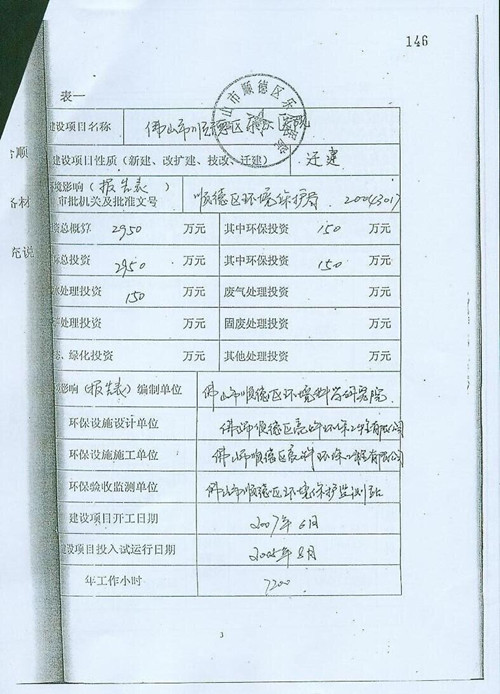 146
表一
建设项目名称 佛山市顺德区乐从医院
合顺
建设项目性质（新建、改扩建、技改、迁建） 迁建
环境影响（报告表）
审批机关及批准文号 顺德区环境保护局 20043017
各材
资总概算 2950 万元 其中环保投资 150 万元
际总投资 2950 万元 其中环保投资 150 万元
充说
水处理投资 150 万元 废气处理投资 万元
处理投资 万元 固废处理投资 万元
、绿化投资 万元 其他处理投资 万元
影响（报告表）编制单位 佛山市顺德区环境科学研究院
环保设施设计单位 佛山市顺德区 环保工程有限公司
环保设施施工单位 佛山市顺德区 环保工程有限公司
环保验收监测单位 佛山市顺德区环境保护监测站
建设项目开工日期 2007年6月
建设项目投入试运行日期 2005年8月
年工作小时 7200
3